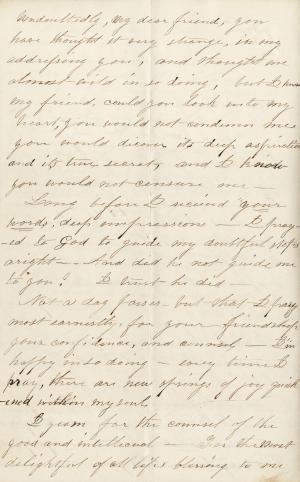 Undoubtedly, my dear friend, you
have thought it very strange, in my
addressing you, and thought me
almost wild in so doing, but I know
my friend, could you look into my
heart, you would not condemn me
you would discern its deep aspirations
and its true secrets, and I know
you would not censure me —
Long before I received your
words, deep impressions — I pray-
ed to God to guide my doubtful steps
aright — And did he not guide me
to you? I trust he did —
Not a day passes — but that I pray
most earnestly, for your friendship
your confidence, and counsel — I'm
happy in so doing — every time I
pray, there are new springs of joy quick
-ened within my soul.
I yearn for the counsel of the
good and intellectual — the most
delightful of all life's blessing to me